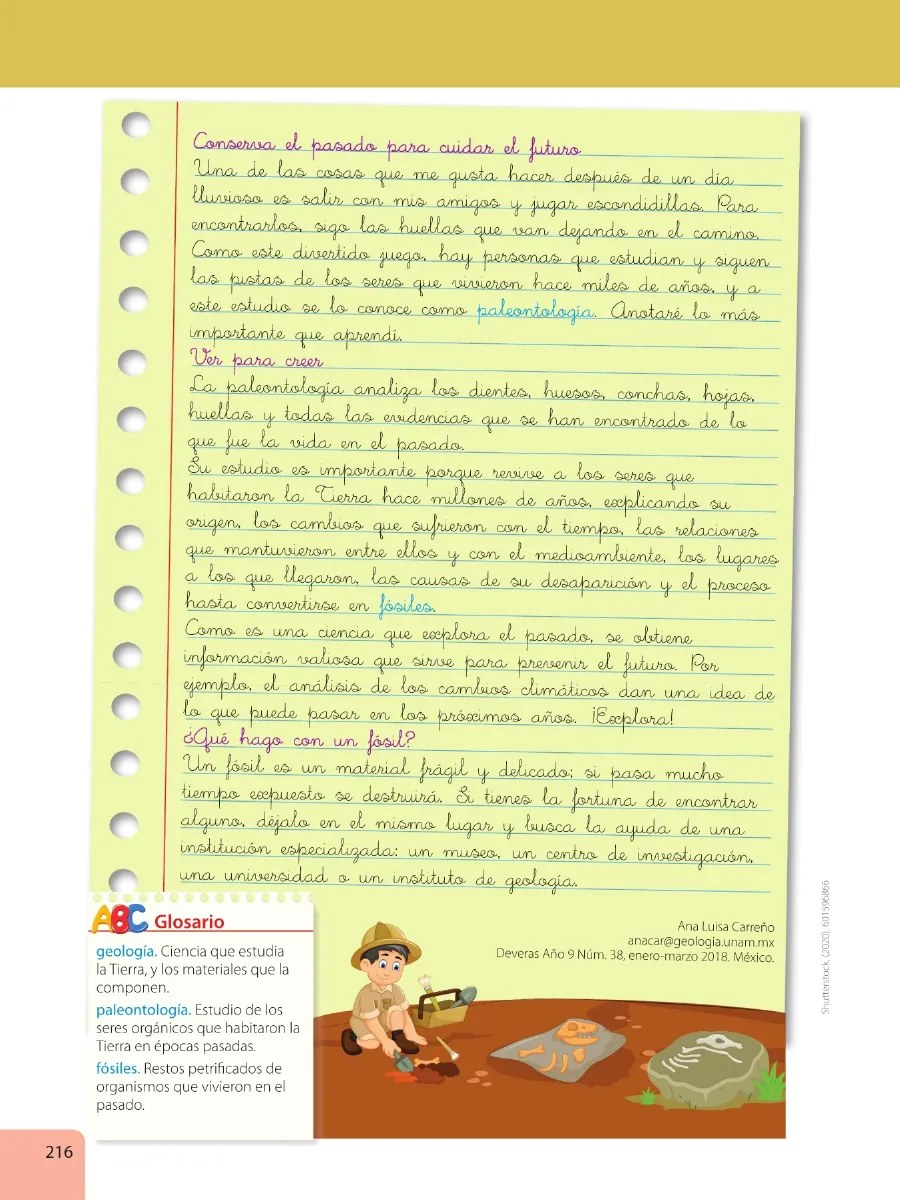 Conserva el pasado para cuidar el futuro
Una de las cosas que me gusta hacer después de un día
lluvioso es salir con mis amigos y jugar escondidillas. Para
encontrarlos, sigo las huellas que van dejando en el camino.
Como este divertido juego, hay personas que estudian y siguen
las pistas de los seres que vivieron hace miles de años, y a
este estudio se lo conoce como paleontología. Anotaré lo más
importante que aprendí.
Ver para creer
La paleontología analiza los dientes, huesos, conchas, hojas,
huellas y todas las evidencias que se han encontrado de lo
que fue la vida en el pasado.
Su estudio es importante porque revive a los seres que
habitaron la Tierra hace millones de años, explicando su
origen, los cambios que sufrieron con el tiempo, las relaciones
que mantuvieron entre ellos y con el medioambiente, los lugares
a los que llegaron, las causas de su desaparición y el proceso
hasta convertirse en fósiles.
Como es una ciencia que explora el pasado, se obtiene
información valiosa que sirve para prevenir el futuro. Por
ejemplo, el análisis de los cambios climáticos dan una idea de
lo que puede pasar en los próximos años. ¡Explora!
¿Qué hago con un fósil?
Un fósil es un material frágil y delicado; si pasa mucho
tiempo expuesto se destruirá. Si tienes la fortuna de encontrar
alguno, déjalo en el mismo lugar y busca la ayuda de una
institución especializada: un museo, un centro de investigación,
una universidad o un instituto de geología.
Ana Luisa Carreño
anacar@geologia.unam.mx
Deveras Año 9 Núm. 38, enero-marzo 2018. México.
Shutterstock, (2020). 601596866
ABC Glosario
geología. Ciencia que estudia
la Tierra, y los materiales que la
componen.
paleontología. Estudio de los
seres orgánicos que habitaron la
Tierra en épocas pasadas.
fósiles. Restos petrificados de
organismos que vivieron en el
pasado.
216